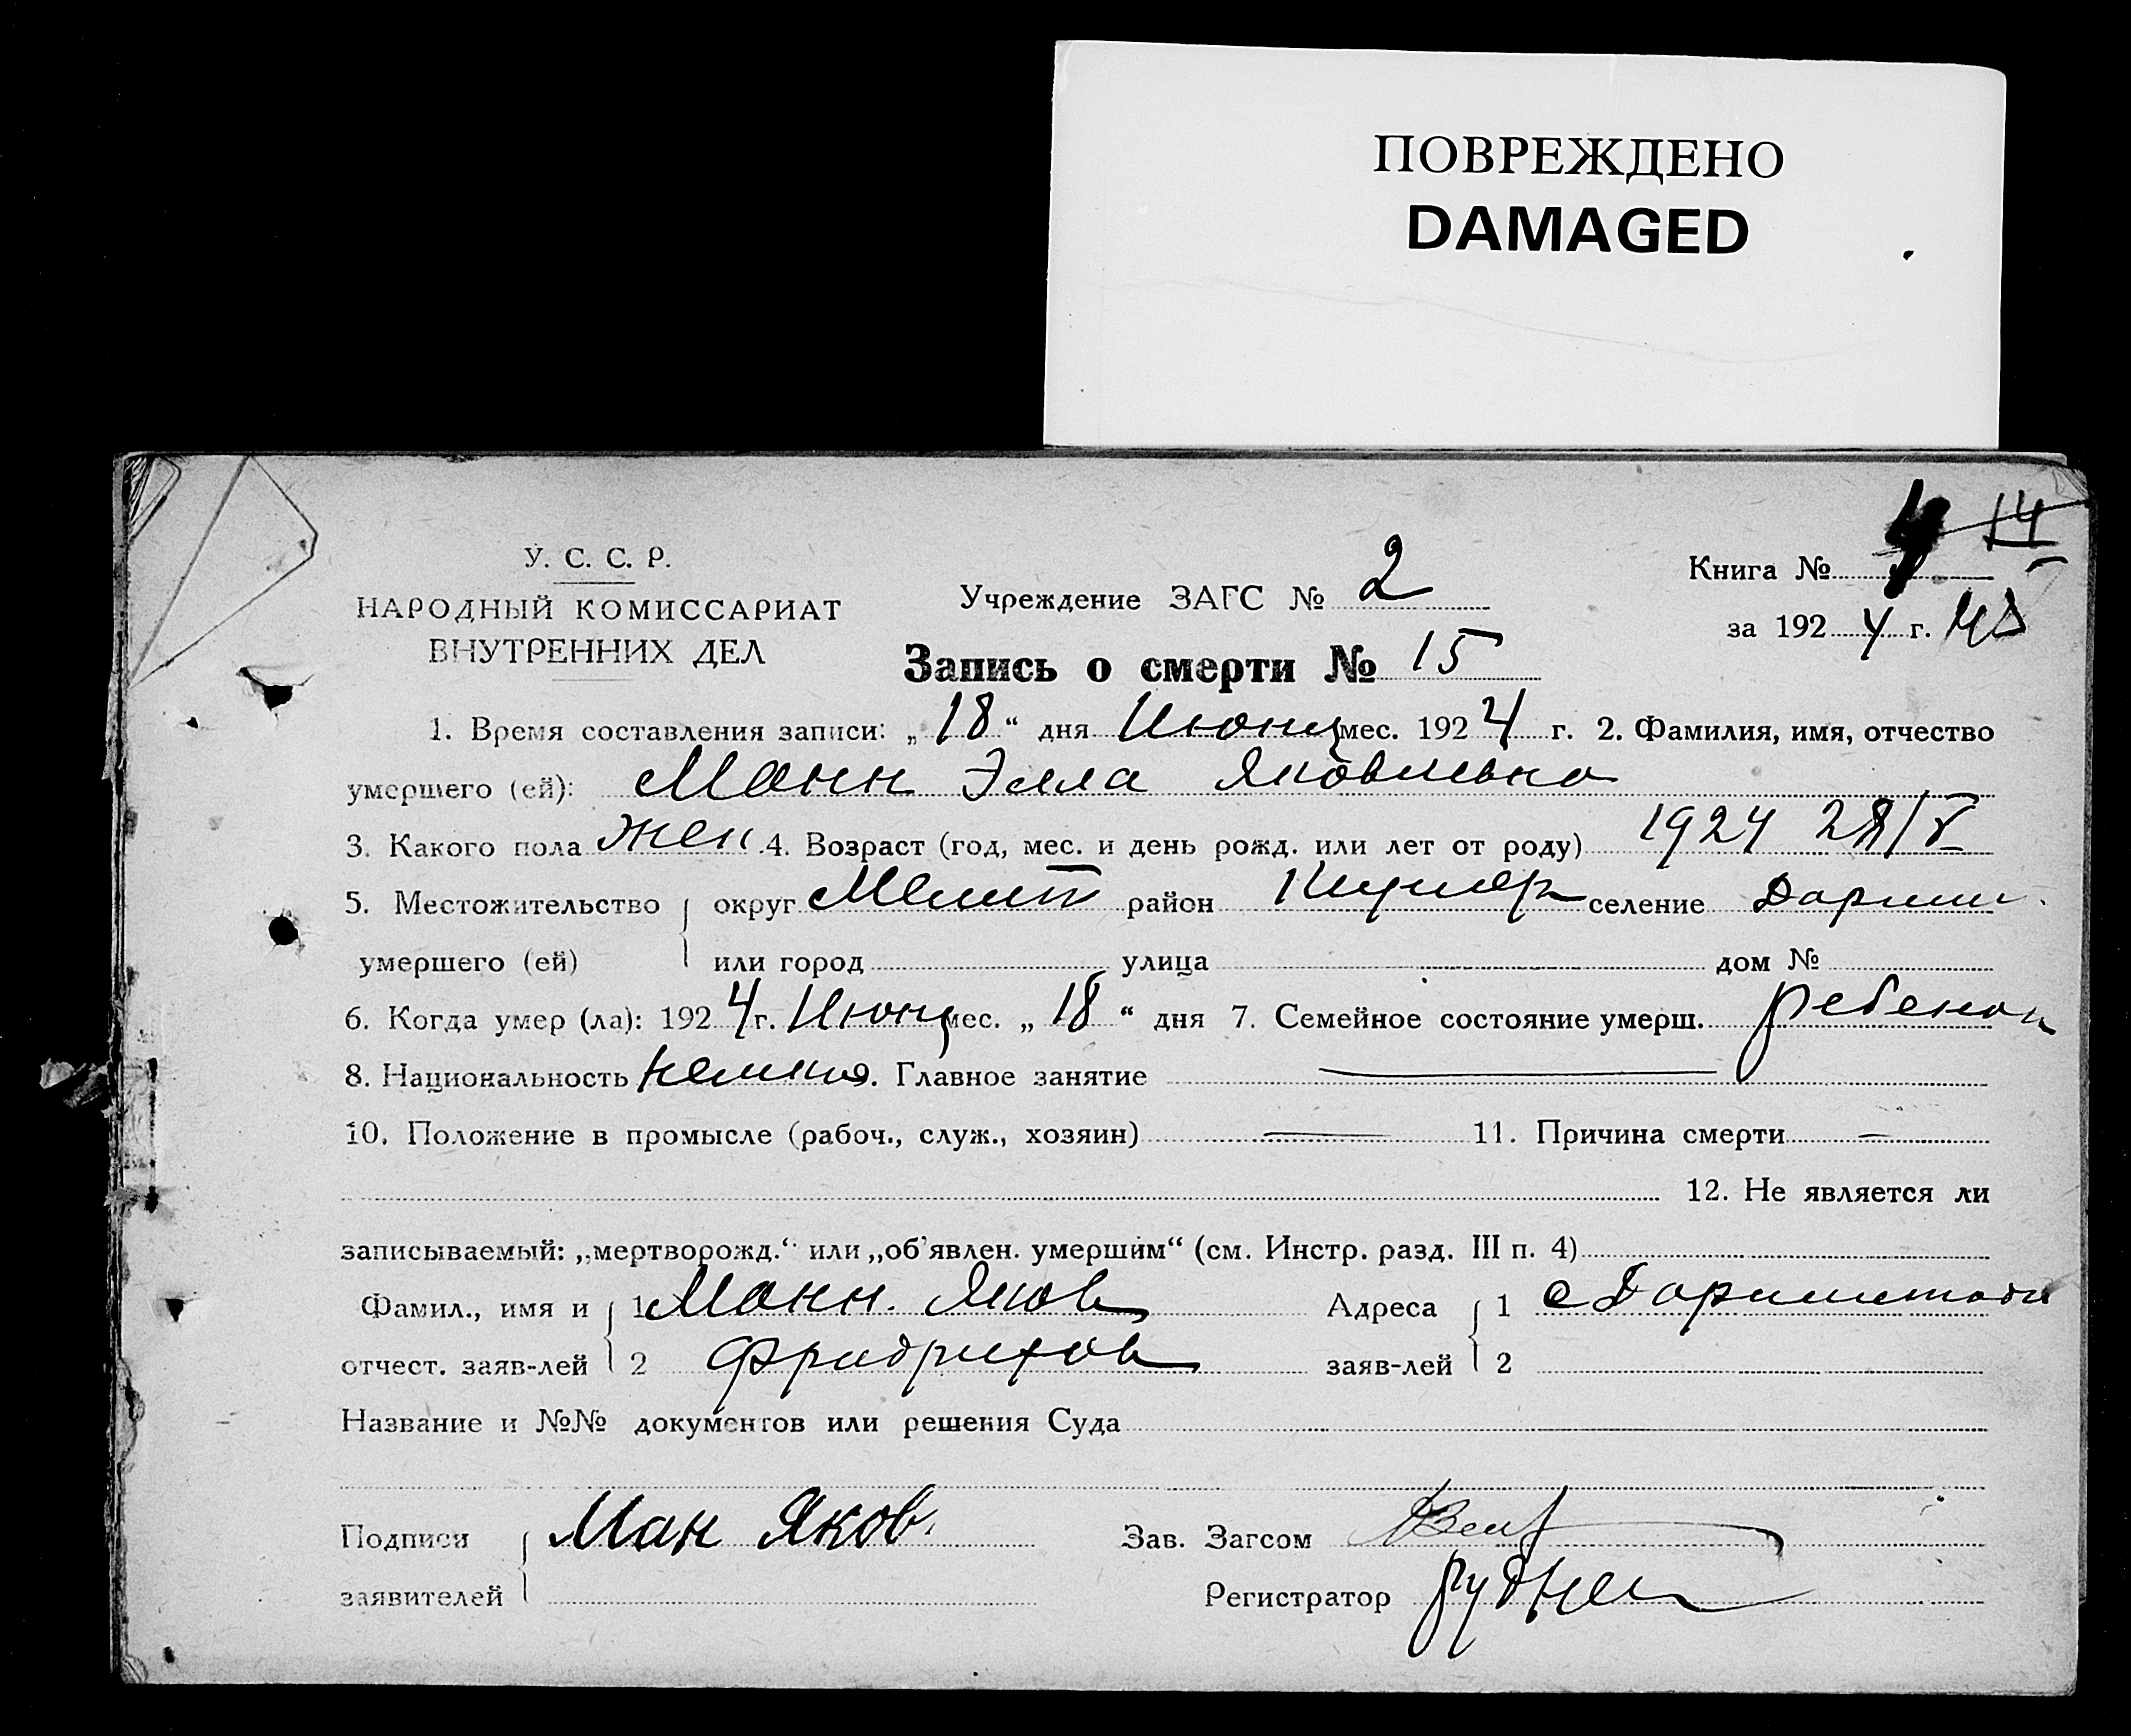 ПОВРЕЖДЕНО
DAMAGED
14
У. С. С. Р.
НАРОДНЫЙ КОМИССАРИАТ
ВНУТРЕННИХ ДЕЛ
Учреждение ЗАГС № 2
Книга №
за 1924 г.
Запись о смерти № 15
1. Время составления записи: „18“ дня Июня мес. 1924 г. 2. Фамилия, имя, отчество
умершего (ей): Манн Элла Яковлевна
3. Какого пола жен. 4. Возраст (год, мес. и день рожд. или лет от роду) 1924 28/V
5. Местожительство округ Мелит район селение Дармш.
умершего (ей) или город улица дом №
6. Когда умер (ла): 1924 г. Июня мес. „18“ дня 7. Семейное состояние умерш. ребенок
8. Национальность немка. Главное занятие —
10. Положение в промысле (рабоч., служ., хозяин) — 11. Причина смерти —
12. Не является ли
записываемый: „мертворожд.“ или „об'явлен. умершим“ (см. Инстр. разд. III п. 4)
Фамил., имя и 1 Манн. Яков Адреса 1 с Дармштадт
отчест. заяв-лей 2 Фридрихов заяв-лей 2
Название и №№ документов или решения Суда
Подписи Ман Яков. Зав. Загсом
заявителей Регистратор